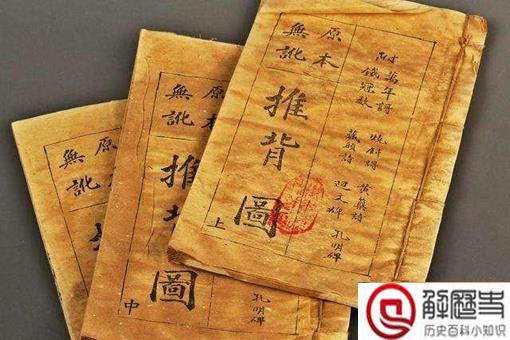 附
萬年謌
鐵冠數
燒餅謌
藏頭詩
黃蘗詩
孔明碑
原本
無訛
推背圖
上
原本
無訛
推背圖
中
孔明碑
原本
無訛
解歷史
历史百科小知识